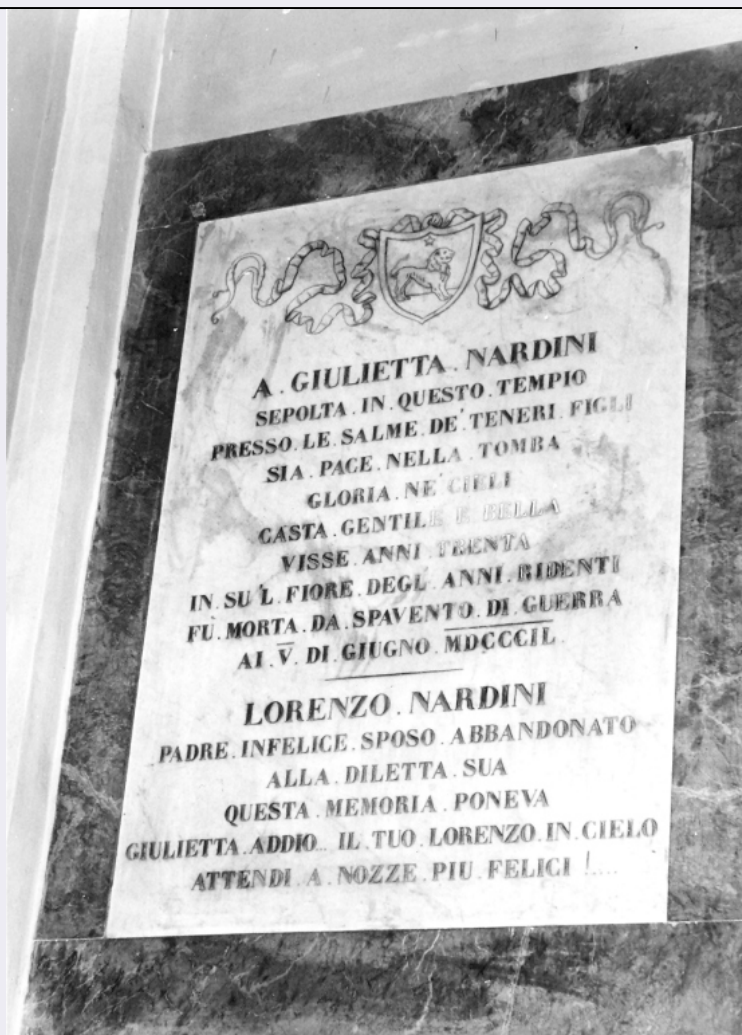 A . GIULIETTA . NARDINI
SEPOLTA . IN . QUESTO . TEMPIO
PRESSO . LE . SALME . DE' TENERI . FIGLI
SIA . PACE . NELLA . TOMBA
GLORIA . NE' CIELI
CASTA . GENTILE E BELLA
VISSE . ANNI . TRENTA
IN . SU 'L . FIORE . DEGL . ANNI . RIDENTI
FÙ . MORTA . DA . SPAVENTO . DI . GUERRA
AI . V̅ . DI . GIUGNO . M̅D̅C̅C̅C̅I̅L̅ .
LORENZO . NARDINI
PADRE . INFELICE . SPOSO . ABBANDONATO
ALLA . DILETTA . SUA
QUESTA . MEMORIA . PONEVA
GIULIETTA . ADDIO... IL . TUO . LORENZO . IN . CIELO
ATTENDI . A . NOZZE . PIU . FELICI !....